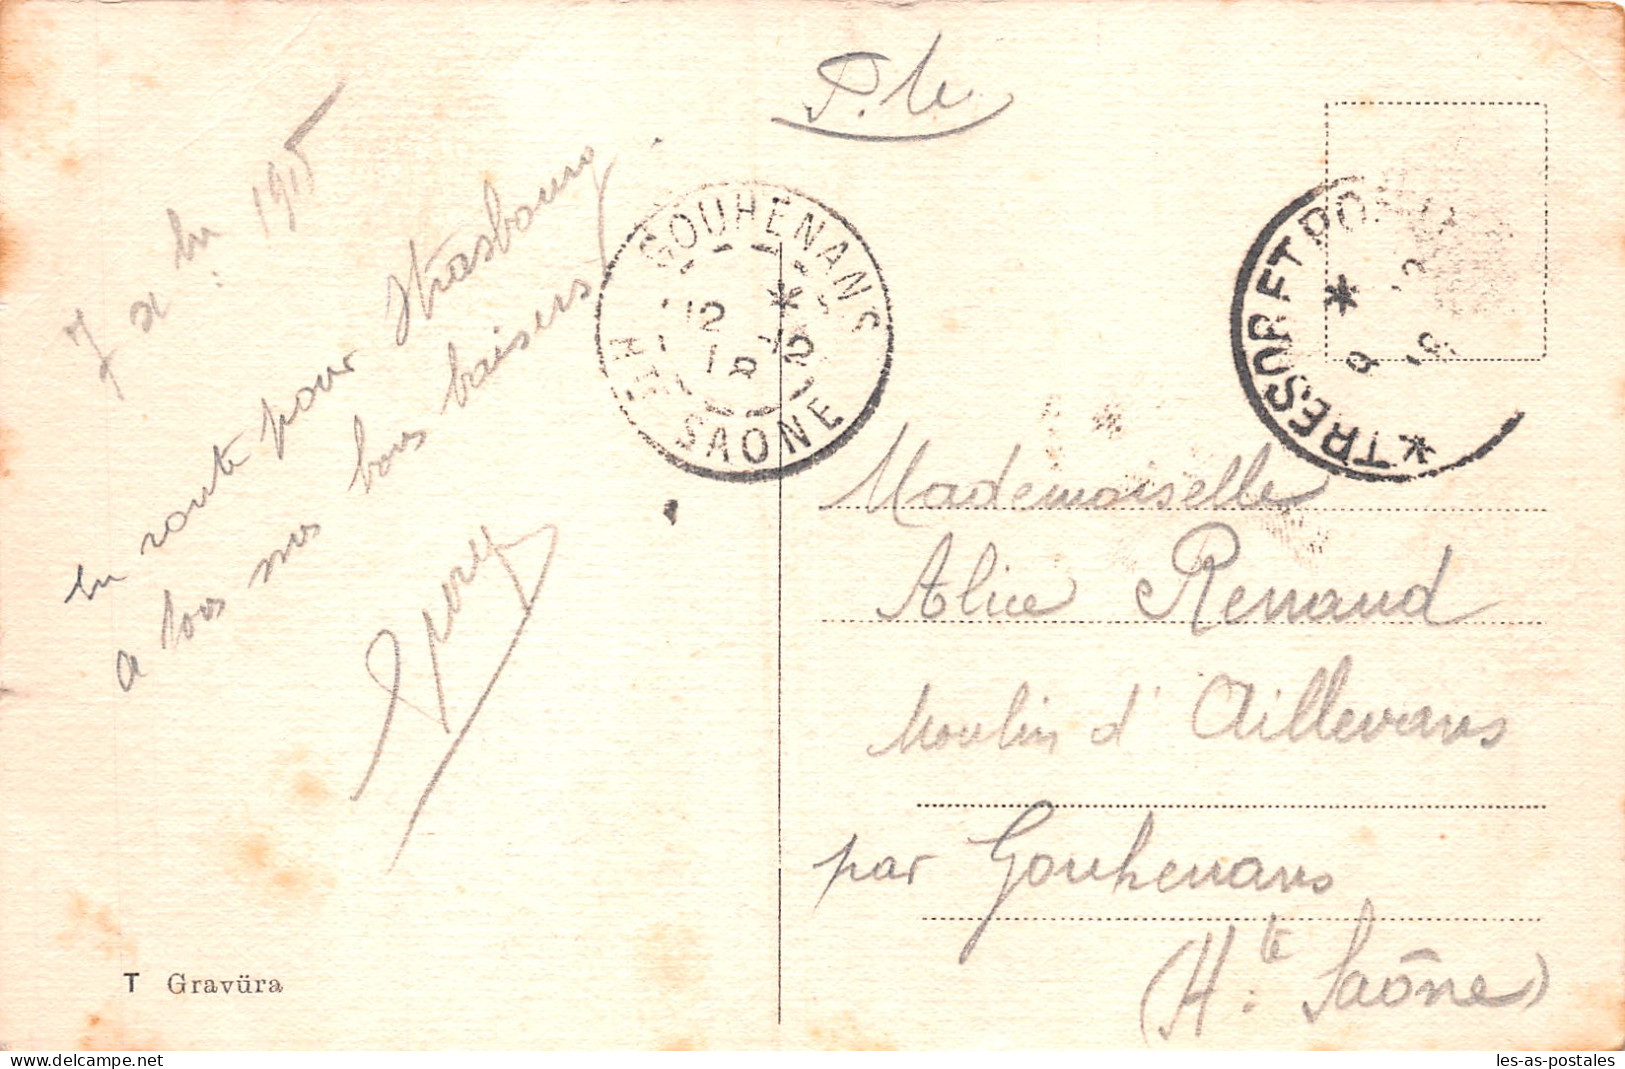 F. M.
7 xbre 1915
en route pour Strasbourg
a tous mes bons baisers
GOUHENANS
12 *
15
HTE SAONE
TRESOR ET POSTES
*
9
Mademoiselle
Alice Renaud
Moulin d'Aillevans
par Gouhenans
(Hte Saône)
T Gravüra
delcampe.net
les-as-postales